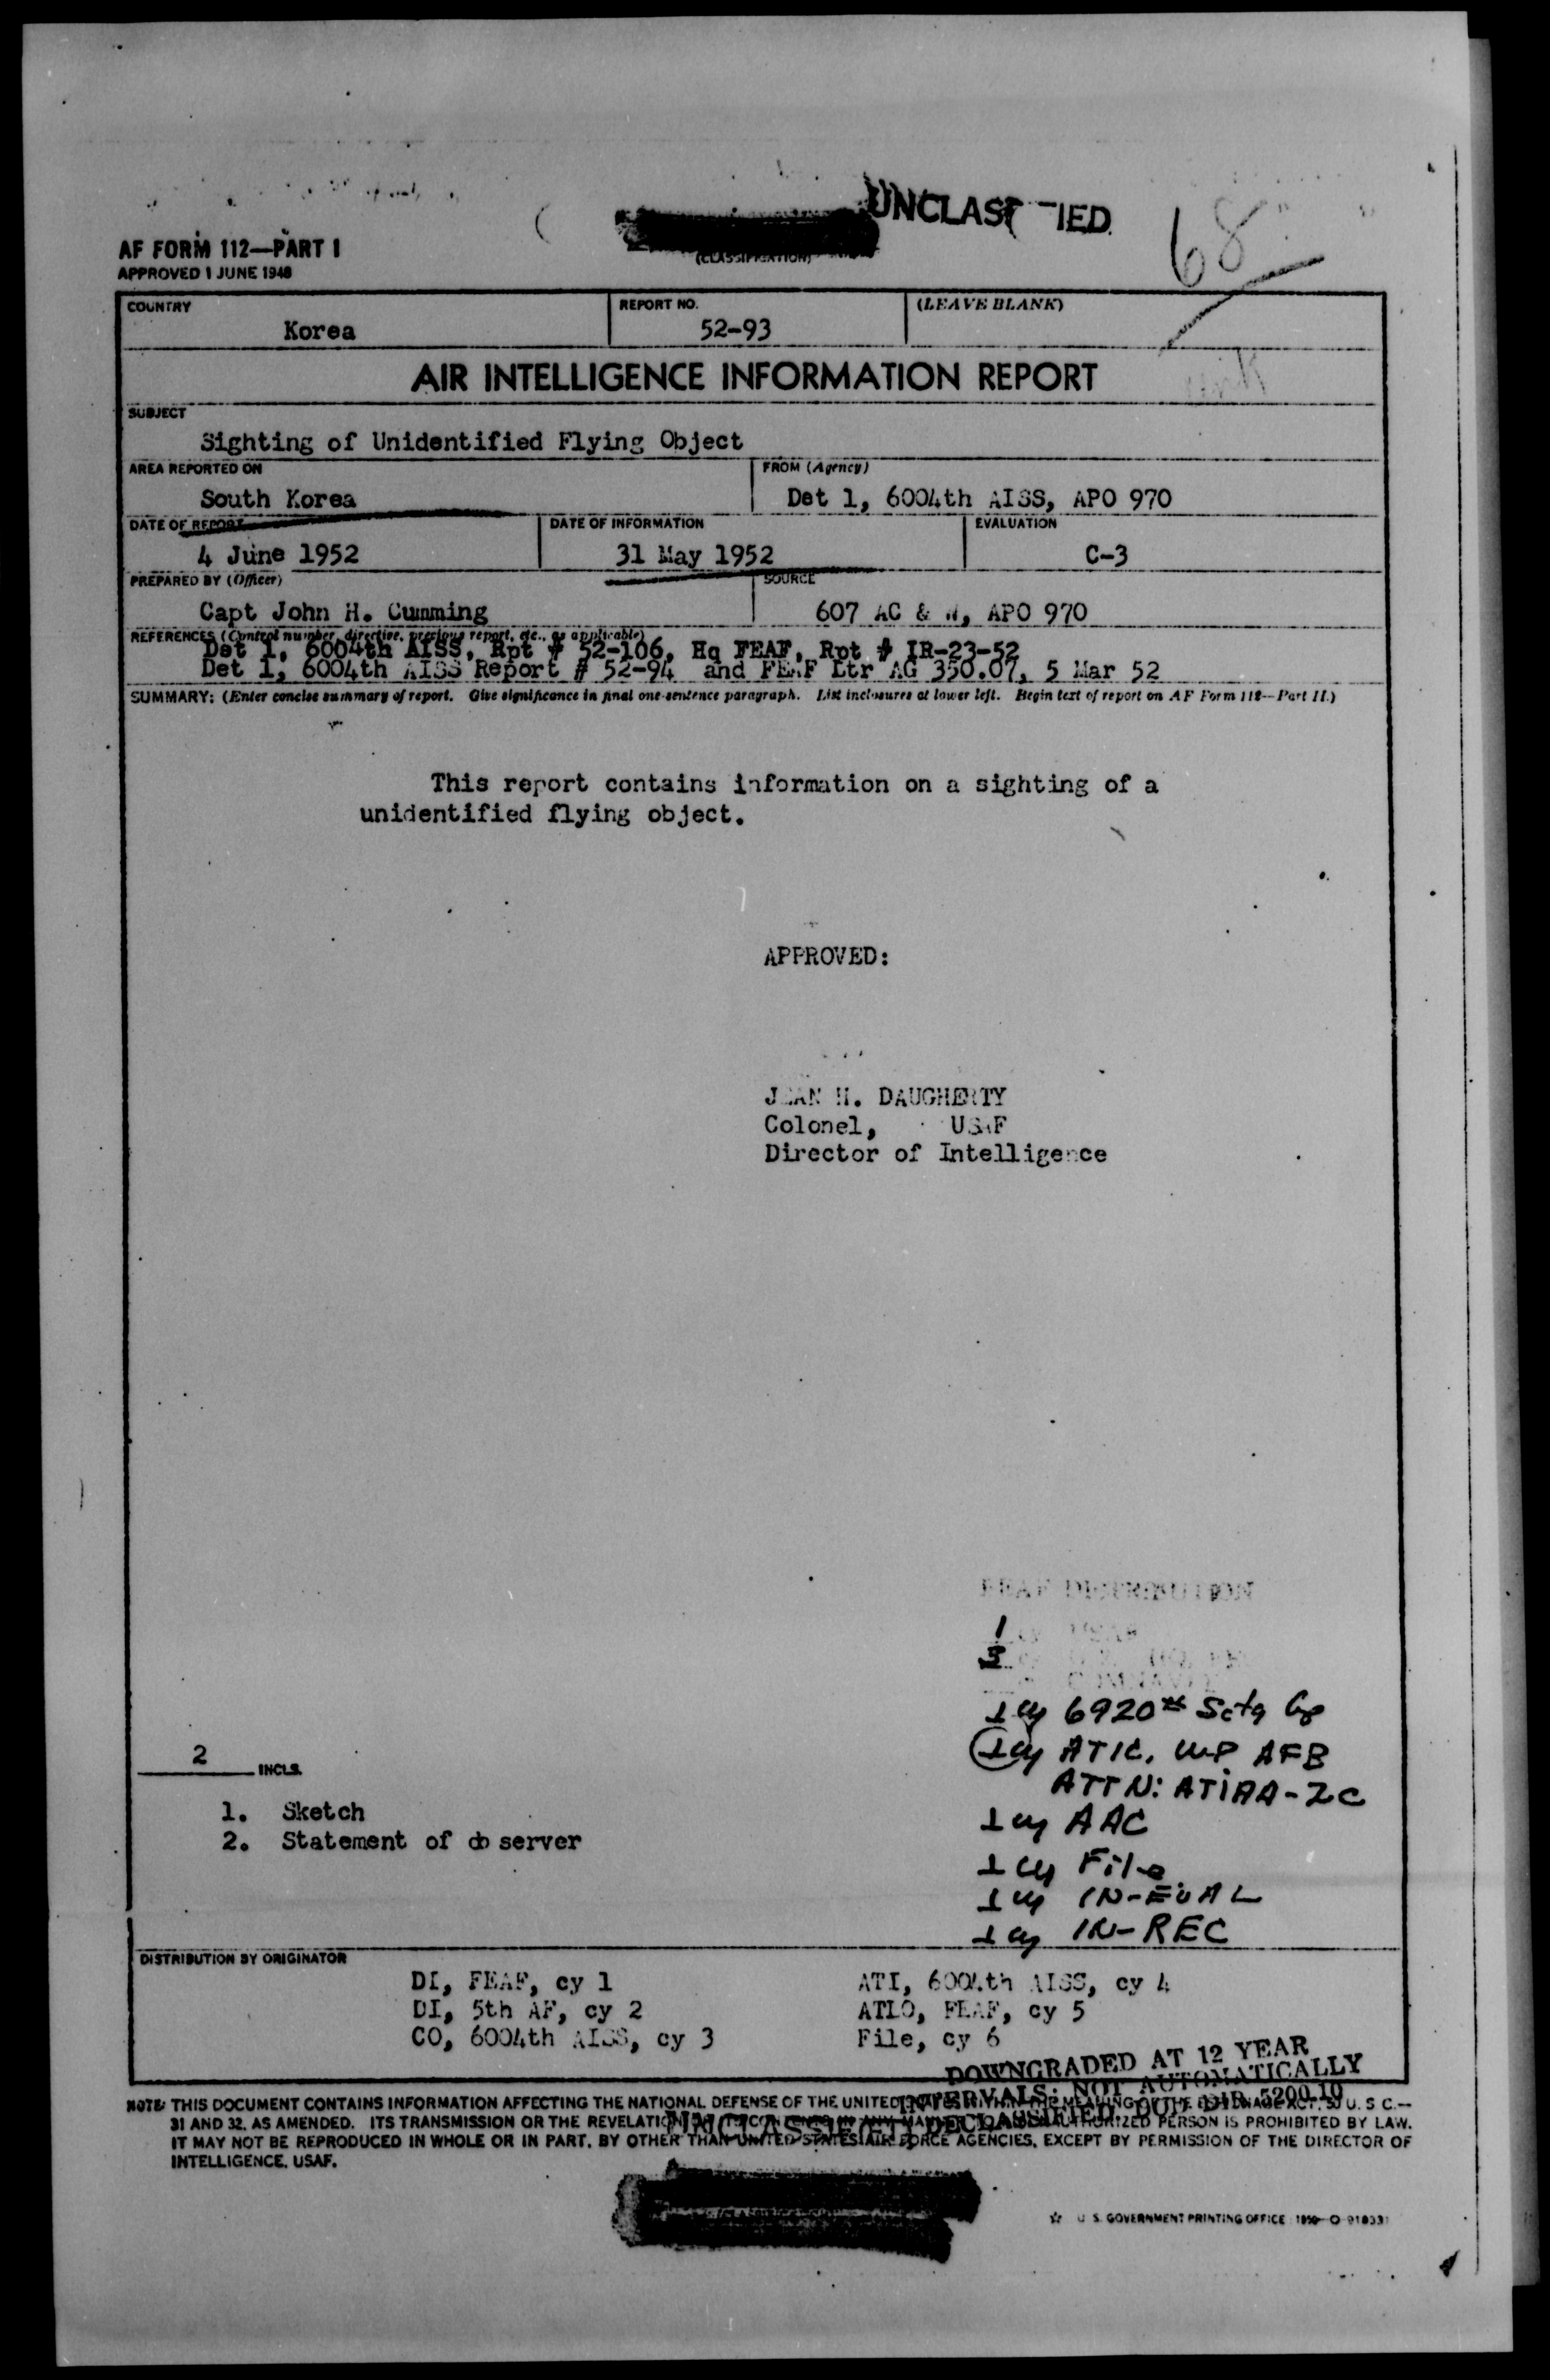 UNCLAS IED
68
AF FORM 112—PART I
APPROVED 1 JUNE 1948
(CLASSIFICATION)
COUNTRY
Korea
REPORT NO.
52-93
(LEAVE BLANK)
AIR INTELLIGENCE INFORMATION REPORT
SUBJECT
Sighting of Unidentified Flying Object
AREA REPORTED ON
South Korea
FROM (Agency)
Det 1, 6004th AISS, APO 970
DATE OF REPORT
4 June 1952
DATE OF INFORMATION
31 May 1952
EVALUATION
C-3
PREPARED BY (Officer)
Capt John H. Cumming
SOURCE
607 AC & W, APO 970
REFERENCES (Control number, directive, previous report, etc., as applicable)
Det 1, 6004th AISS, Rpt # 52-106, Hq FEAF, Rpt # IR-23-52
Det 1, 6004th AISS Report # 52-94 and FEAF Ltr AG 350.07, 5 Mar 52
SUMMARY: (Enter concise summary of report. Give significance in final one-sentence paragraph. List inclosures at lower left. Begin text of report on AF Form 112—Part II.)
This report contains information on a sighting of a
unidentified flying object.
APPROVED:
JEAN H. DAUGHERTY
Colonel, USAF
Director of Intelligence
FEAF DISTRIBUTION
1
3
1 cy 6920th Scty Gp
1 cy ATIC, W-P AFB
ATTN: ATIAA-2C
1 cy AAC
1 cy File
1 cy IN-EVAL
1 cy IN-REC
2 INCLS.
1. Sketch
2. Statement of ob server
DISTRIBUTION BY ORIGINATOR
DI, FEAF, cy 1
DI, 5th AF, cy 2
CO, 6004th AISS, cy 3
ATI, 6004th AISS, cy 4
ATLO, FEAF, cy 5
File, cy 6
DOWNGRADED AT 12 YEAR
INTERVALS: NOT AUTOMATICALLY
DECLASSIFIED. DOD DIR 5200.10
UNCLASSIFIED
NOTE: THIS DOCUMENT CONTAINS INFORMATION AFFECTING THE NATIONAL DEFENSE OF THE UNITED STATES WITHIN THE MEANING OF THE ESPIONAGE ACT, 50 U. S. C.—
31 AND 32, AS AMENDED. ITS TRANSMISSION OR THE REVELATION OF ITS CONTENTS IN ANY MANNER TO AN UNAUTHORIZED PERSON IS PROHIBITED BY LAW.
IT MAY NOT BE REPRODUCED IN WHOLE OR IN PART, BY OTHER THAN UNITED STATES AIR FORCE AGENCIES, EXCEPT BY PERMISSION OF THE DIRECTOR OF
INTELLIGENCE, USAF.
☆ U. S. GOVERNMENT PRINTING OFFICE